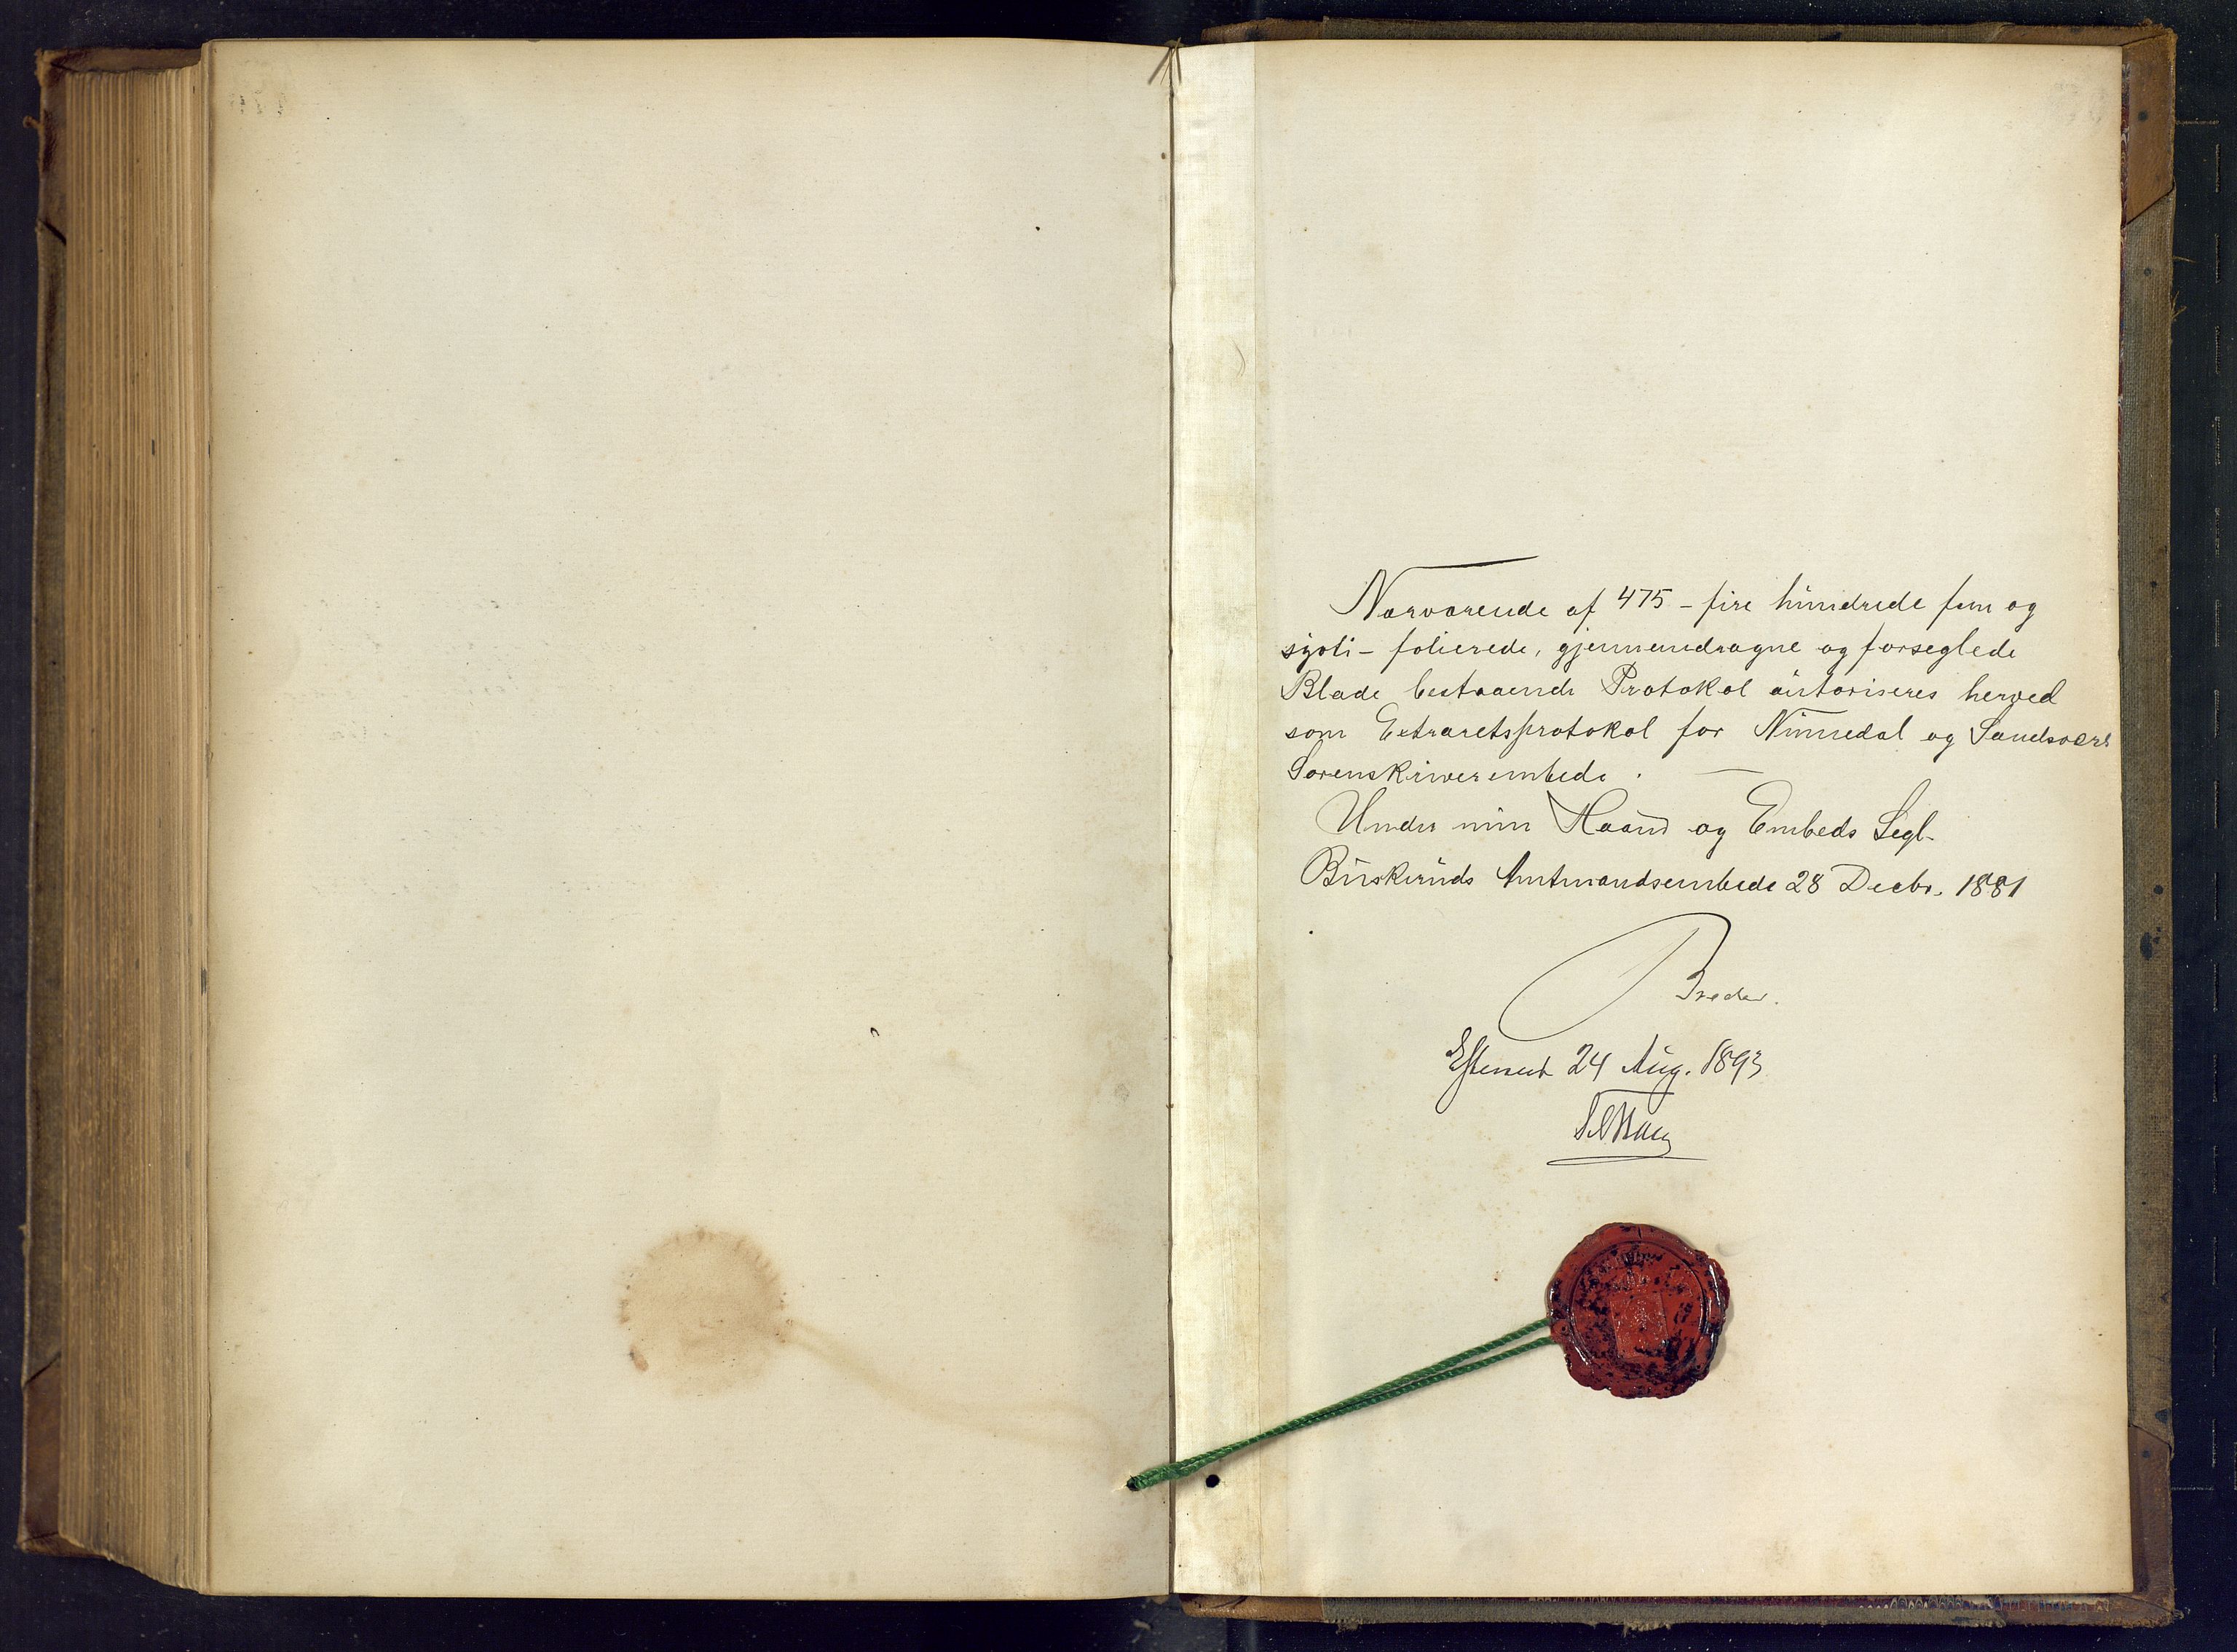 Nærværende af 475 - fire hundrede fem og
sytti - folierede, gjennemdragne og forseglede
Blade bestaaende Protokol autoriseres herved
som Extraretsprotokol for Numedal og Sandsvers
Sorenskriverembede. —
Under min Haand og Embeds Segl.
Buskeruds Amtmandsembede 28 Decbr. 1881
Breder.
Efterseet 24 Aug. 1893